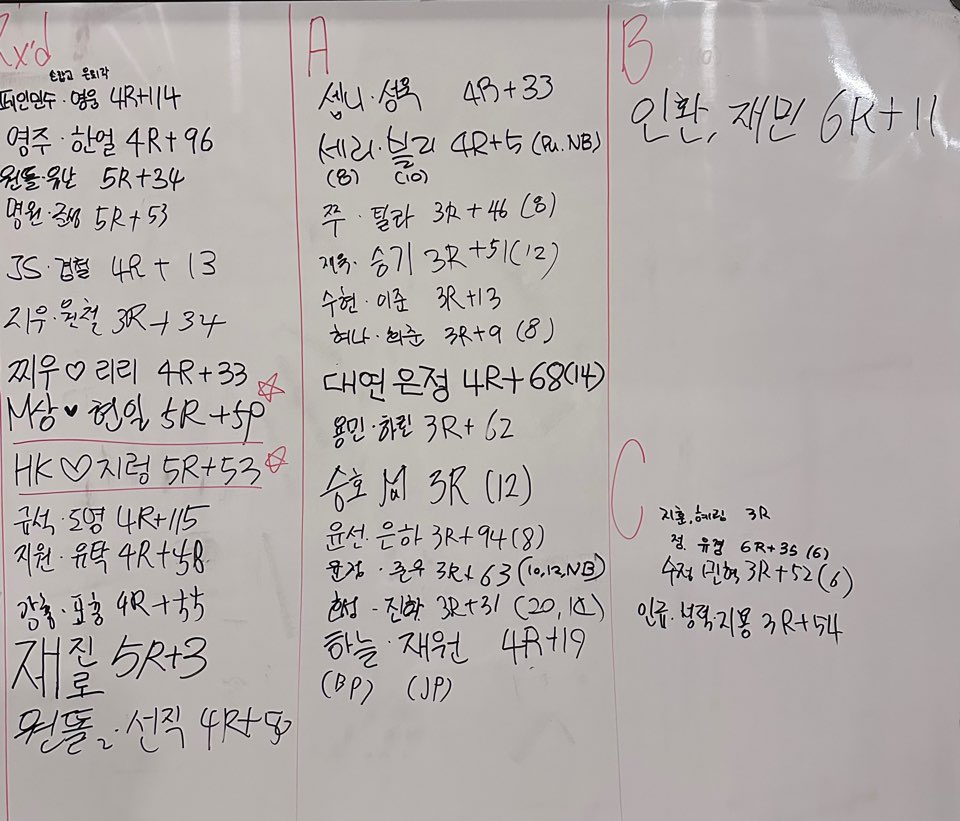 Rx'd
영웅 4R+114
영주·한얼 4R+96
원돌·유난 5R+34
명원·준생 5R+53
JS·겸철 4R+13
지우·원철 3R+34
찌우♡리리 4R+33
M상♥현일 5R+50
HK♡지렁 5R+53
규석·도영 4R+115
지원·유탁 4R+48
4R+55
재 진로 5R+3
원돌2·선직 4R+
A
셉니·성욱 4R+33
세리·블리 4R+5 (Pu.NB)
(8) (10)
쭈·탈라 3R+46 (8)
재욱·승기 3R+51(12)
수현·이준 3R+13
혀나·희준 3R+9 (8)
대연은정 4R+68(14)
용민·하린 3R+62
승호 3R (12)
윤선·은하 3R+94(8)
윤정·준우 3R+63(10,12,NB)
현성·진화 3R+31
하늘·재원 4R+19
(BP) (JP)
B
인환, 재민 6R+11
C
지훈, 혜림 3R
정 유겸 6R+35 (6)
수정 민혁 3R+52(6)
인규·성력·지용 3R+54